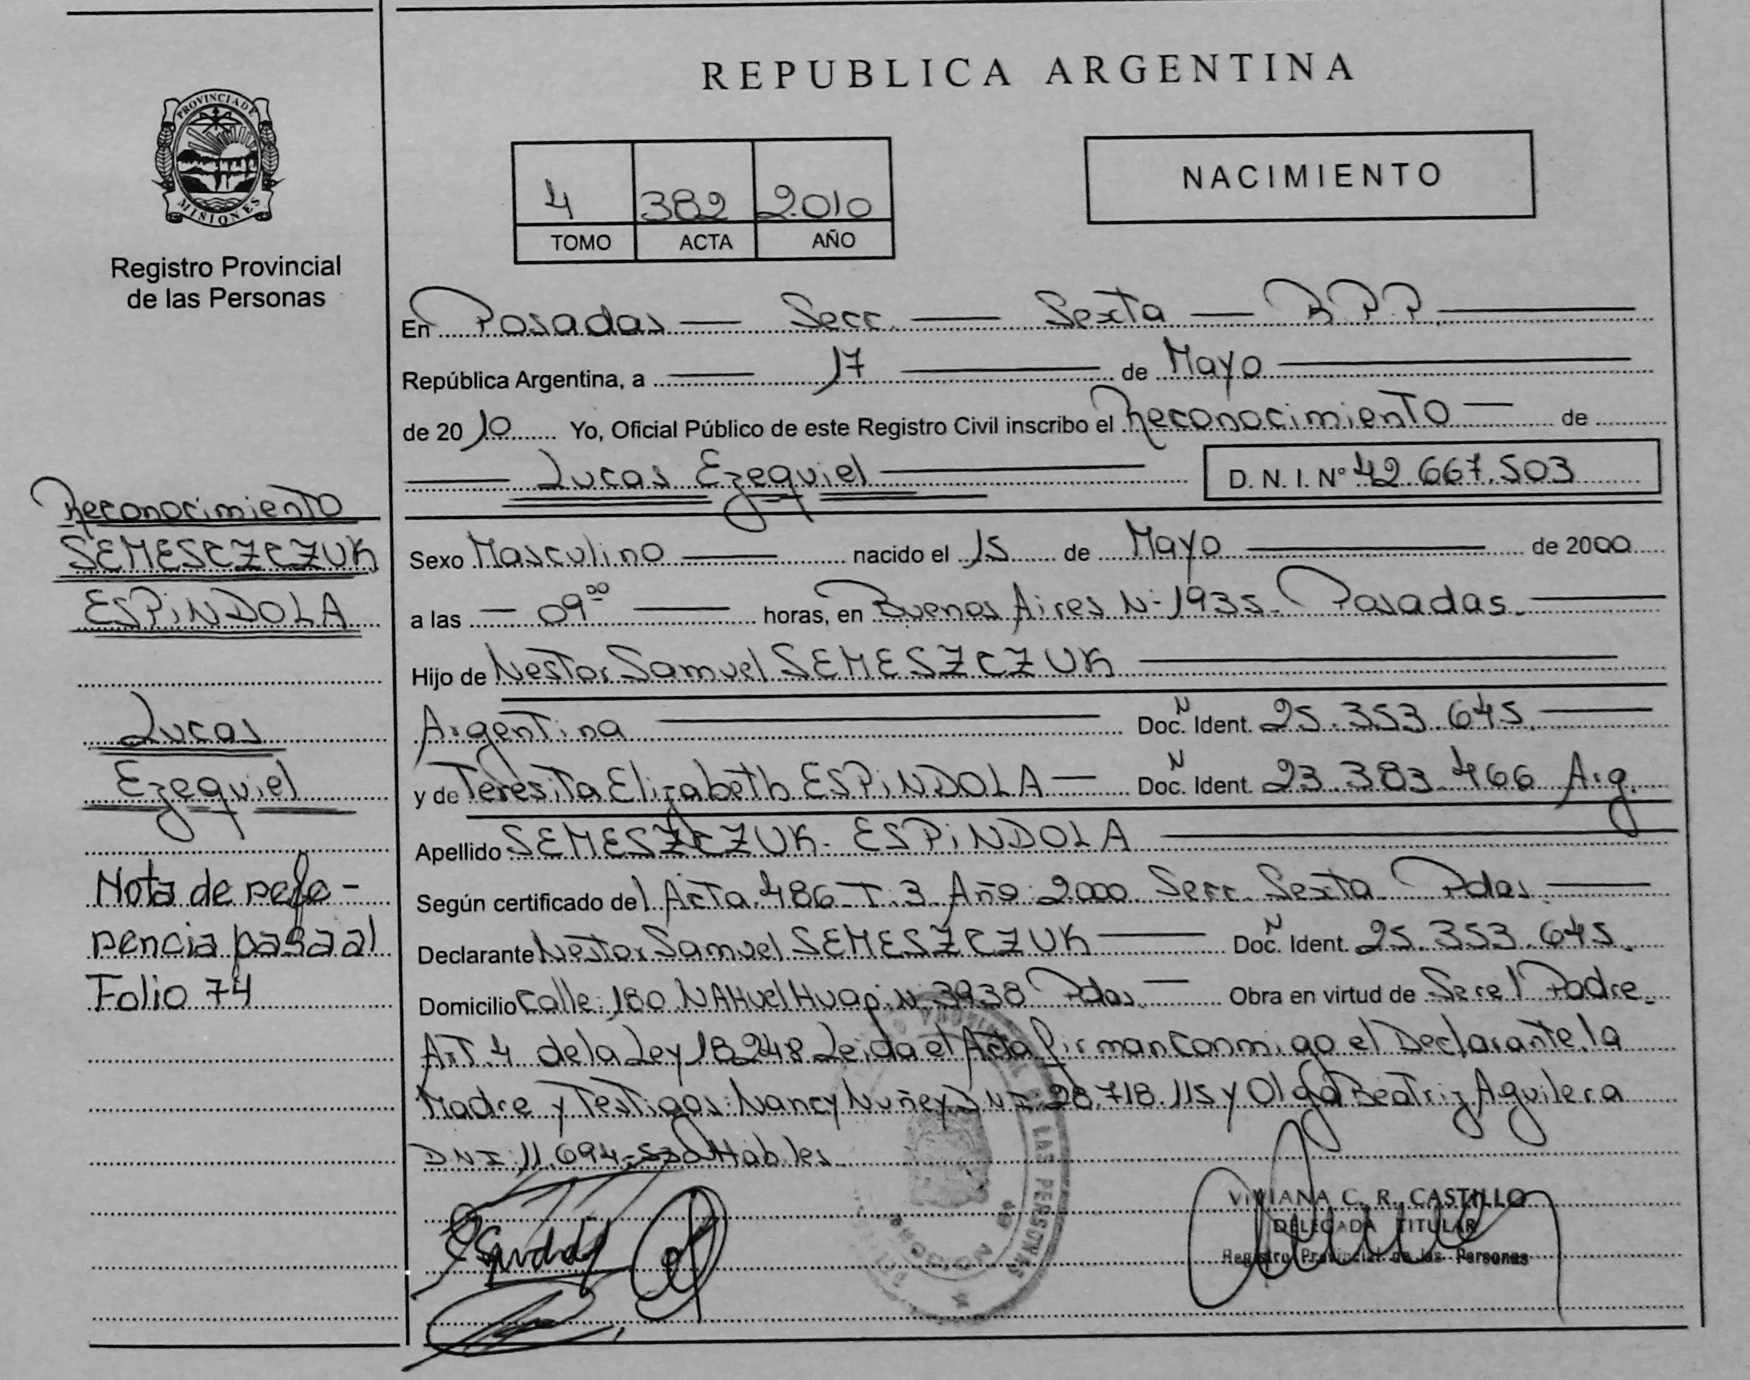 PROVINCIA DE
MISIONES
Registro Provincial
de las Personas
Reconocimiento
SEMESCZCZUK
ESPiNDOLA
Lucas
Ezequiel
Nota de refe-
rencia pasa al
Folio 74
REPUBLICA ARGENTINA
4 382 2010
TOMO ACTA AÑO
NACIMIENTO
En Posadas — Secc. — Sexta — R.P.P.
República Argentina, a — 17 — de Mayo
de 20 10 Yo, Oficial Público de este Registro Civil inscribo el Reconocimiento — de
— Lucas Ezequiel — D. N. I. Nº 42.667.503
Sexo Masculino — nacido el 15 de Mayo — de 2000
a las — 09⁰⁰ — horas, en Buenos Aires Nº 1935 - Posadas. —
Hijo de Nestor Samuel SEMESZCZUK —
Argentina — Doc. N Ident. 25.353.645 —
y de Teresita Elizabeth ESPiNDOLA — Doc. N Ident. 23.383.466 Arg.
Apellido SEMESZCZUK - ESPiNDOLA —
Según certificado del Acta 486 - T. 3 Año: 2000. Secc. Sexta Pdas. —
Declarante Nestor Samuel SEMESZCZUK — Doc. N Ident. 25.353.645.
Domicilio Calle: 180 NAHuel Huapi Nº 3938 Pdas. — Obra en virtud de Ser el Padre.
Art. 4 de la Ley 18248 Leida el Acta firman conmigo el Declarante, la
Madre y Testigos: Nancy Nuñez DNI: 28.718.115 y Olga Beatriz Aguilera
DNI: 11.694. Habiles
VIVIANA C. R. CASTILLO
DELEGADA TITULAR
Registro Provincial de las Personas